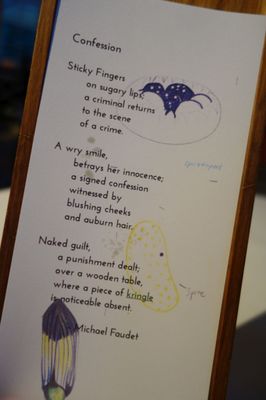 Confession
Sticky Fingers
on sugary lips;
a criminal returns
to the scene
of a crime.
A wry smile,
betrays her innocence;
a signed confession
witnessed by
blushing cheeks
and auburn hair.
Naked guilt,
a punishment dealt;
over a wooden table,
where a piece of kringle
is noticeable absent.
Michael Faudet